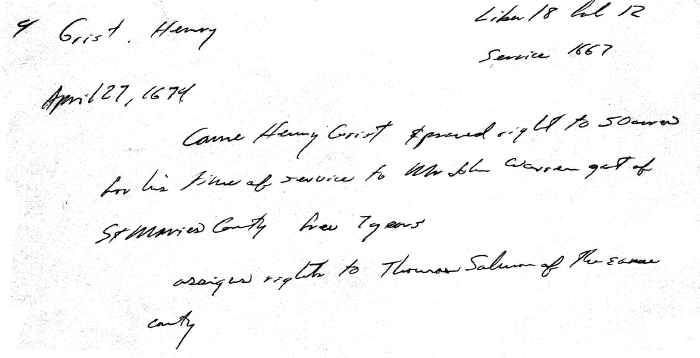 4 Grist, Henry
Liber 18 fol 12
Service 1667
April 27, 1674
Came Henry Grist & proved right to 50 acres
for his time of service to Mr John Warren gat of
St Maries County free 7 years
assigns rights to Thomas Salmon of the same
county